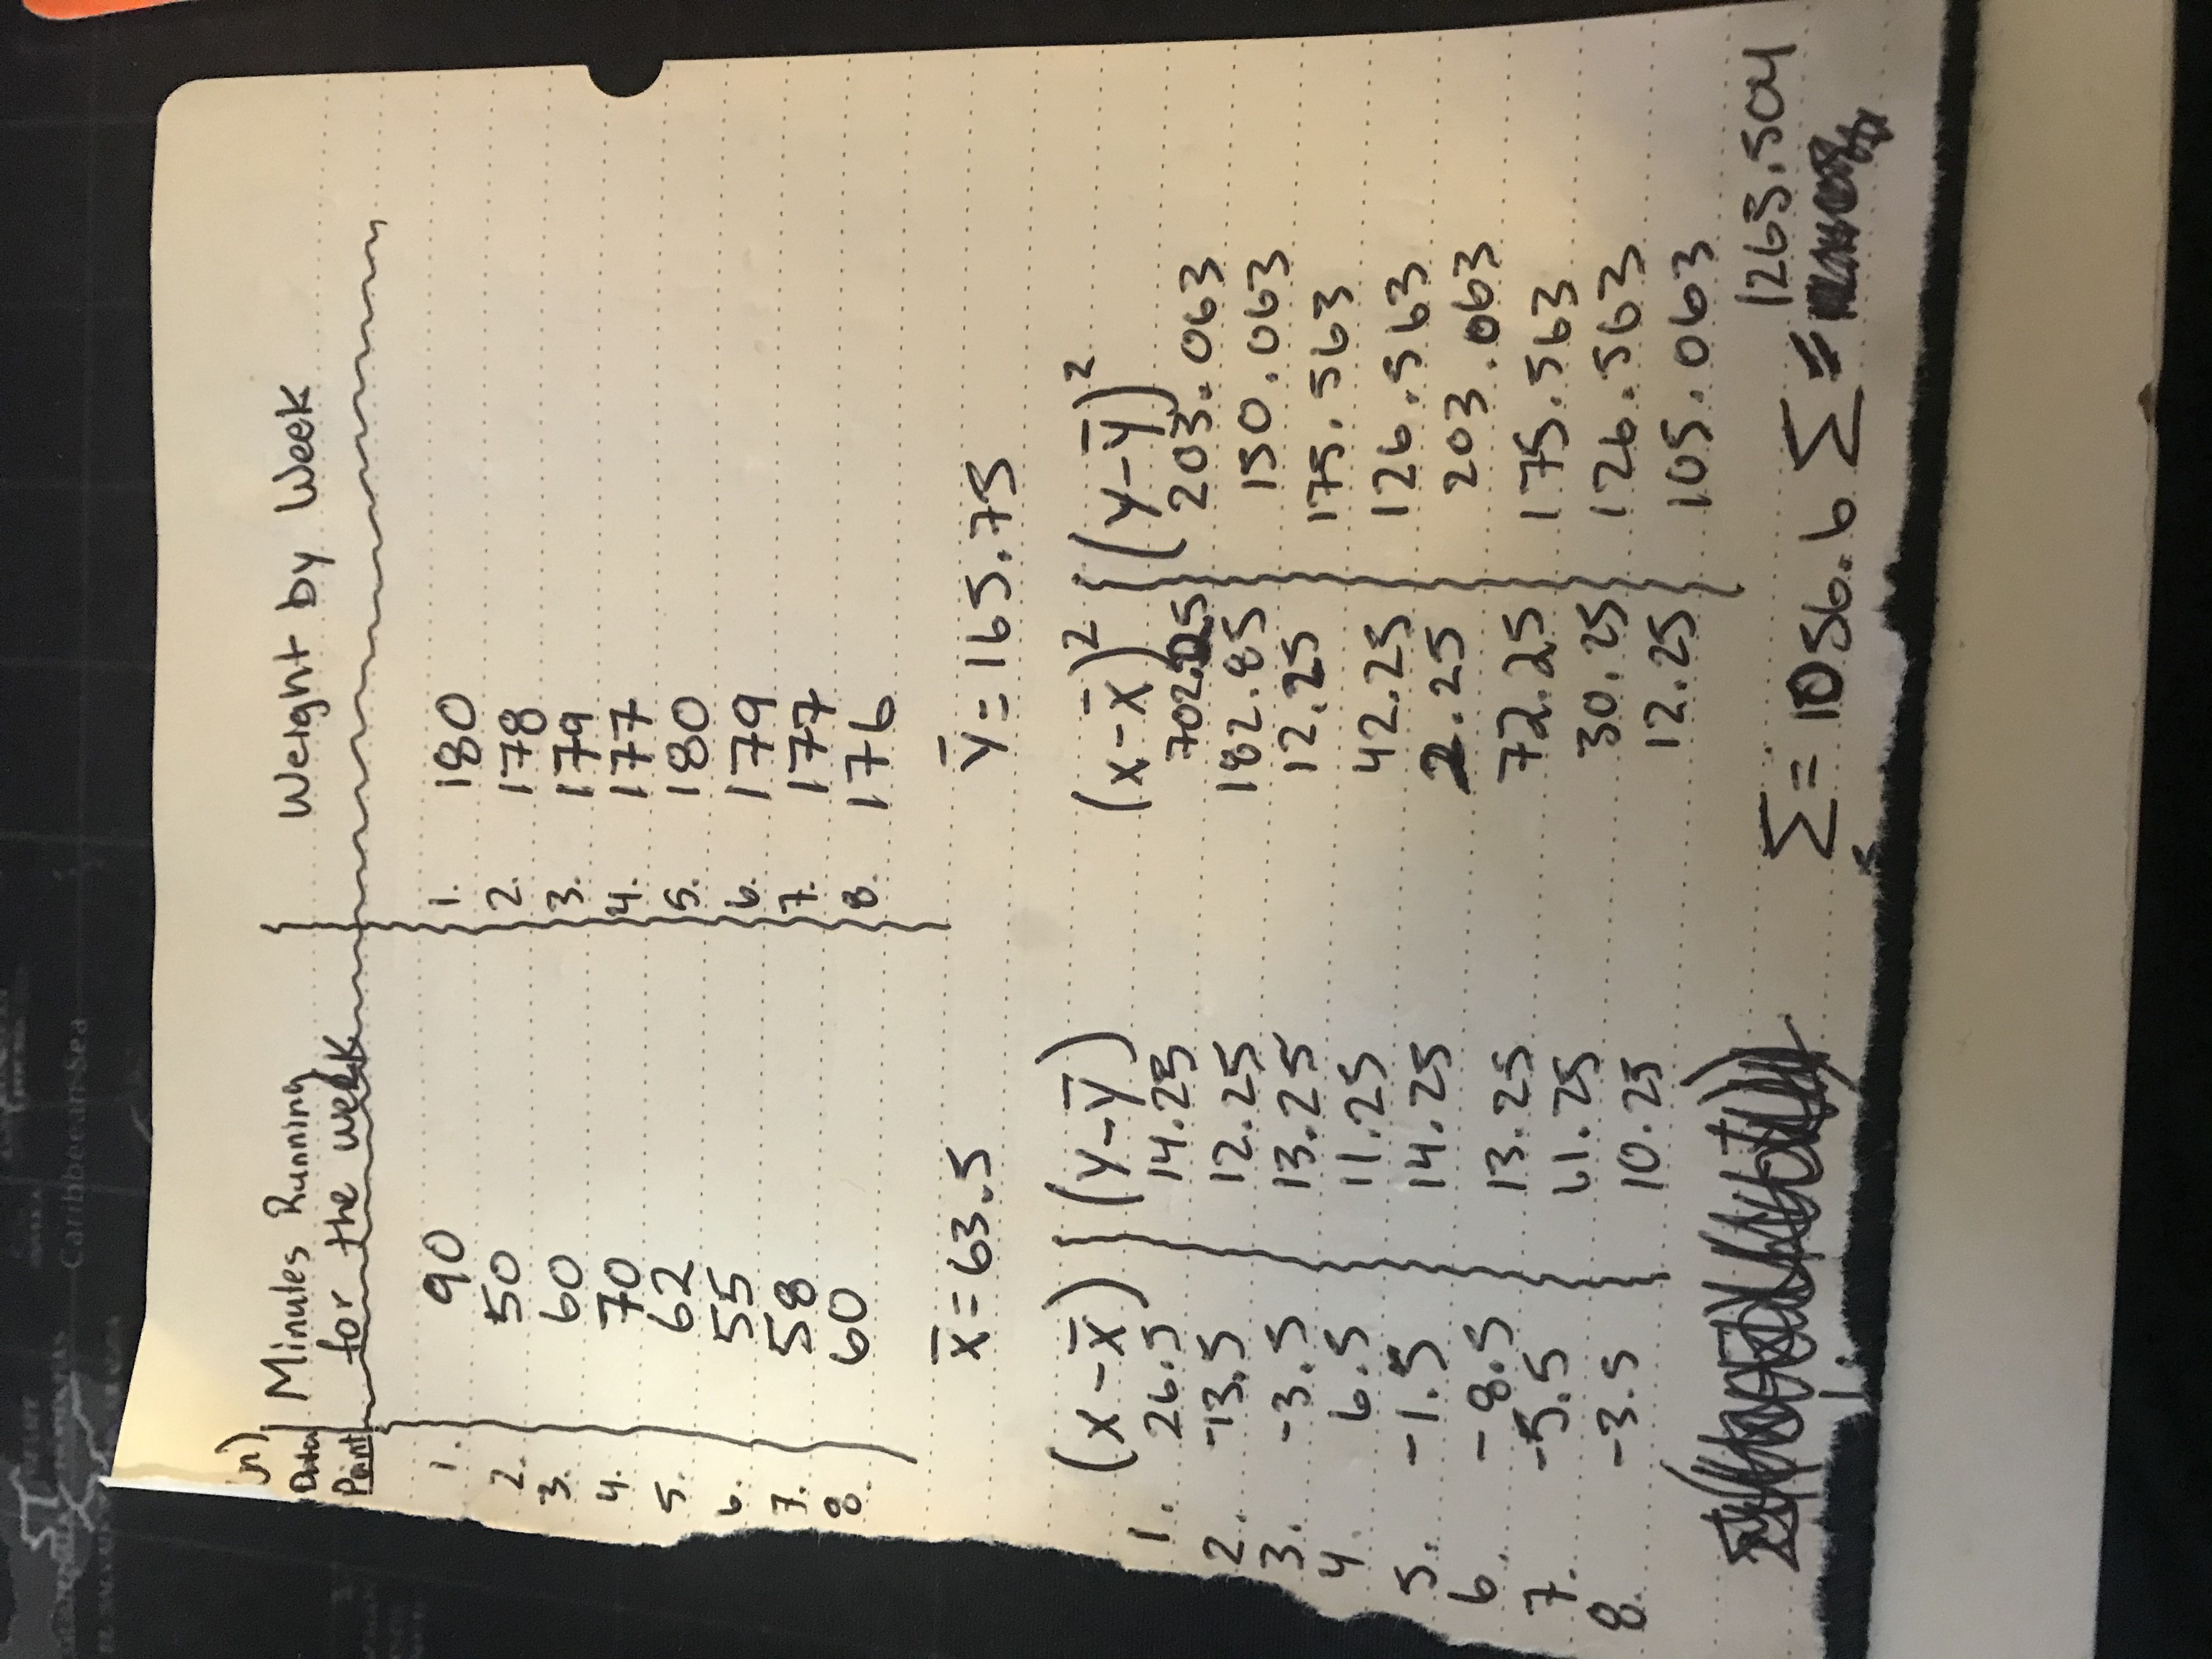 Caribbean Sea
(n)
Data Point
Minutes Running for the week
Weight by Week
1. 90 1. 180
2. 50 2. 178
3. 60 3. 179
4. 70 4. 177
5. 62 5. 180
6. 55 6. 179
7. 58 7. 177
8. 60 8. 176
x̄ = 63.5 ȳ = 165.75
(x - x̄) (y - ȳ) (x - x̄)² (y - ȳ)²
1. 26.5 14.25 702.25 203.063
2. -13.5 12.25 182.85 150.063
3. -3.5 13.25 12.25 175.563
4. 6.5 11.25 42.25 126.563
5. -1.5 14.25 2.25 203.063
6. -8.5 13.25 72.25 175.563
7. -5.5 11.25 30.25 126.563
8. -3.5 10.25 12.25 105.063
Σ = 1056.6 Σ = 1265.504